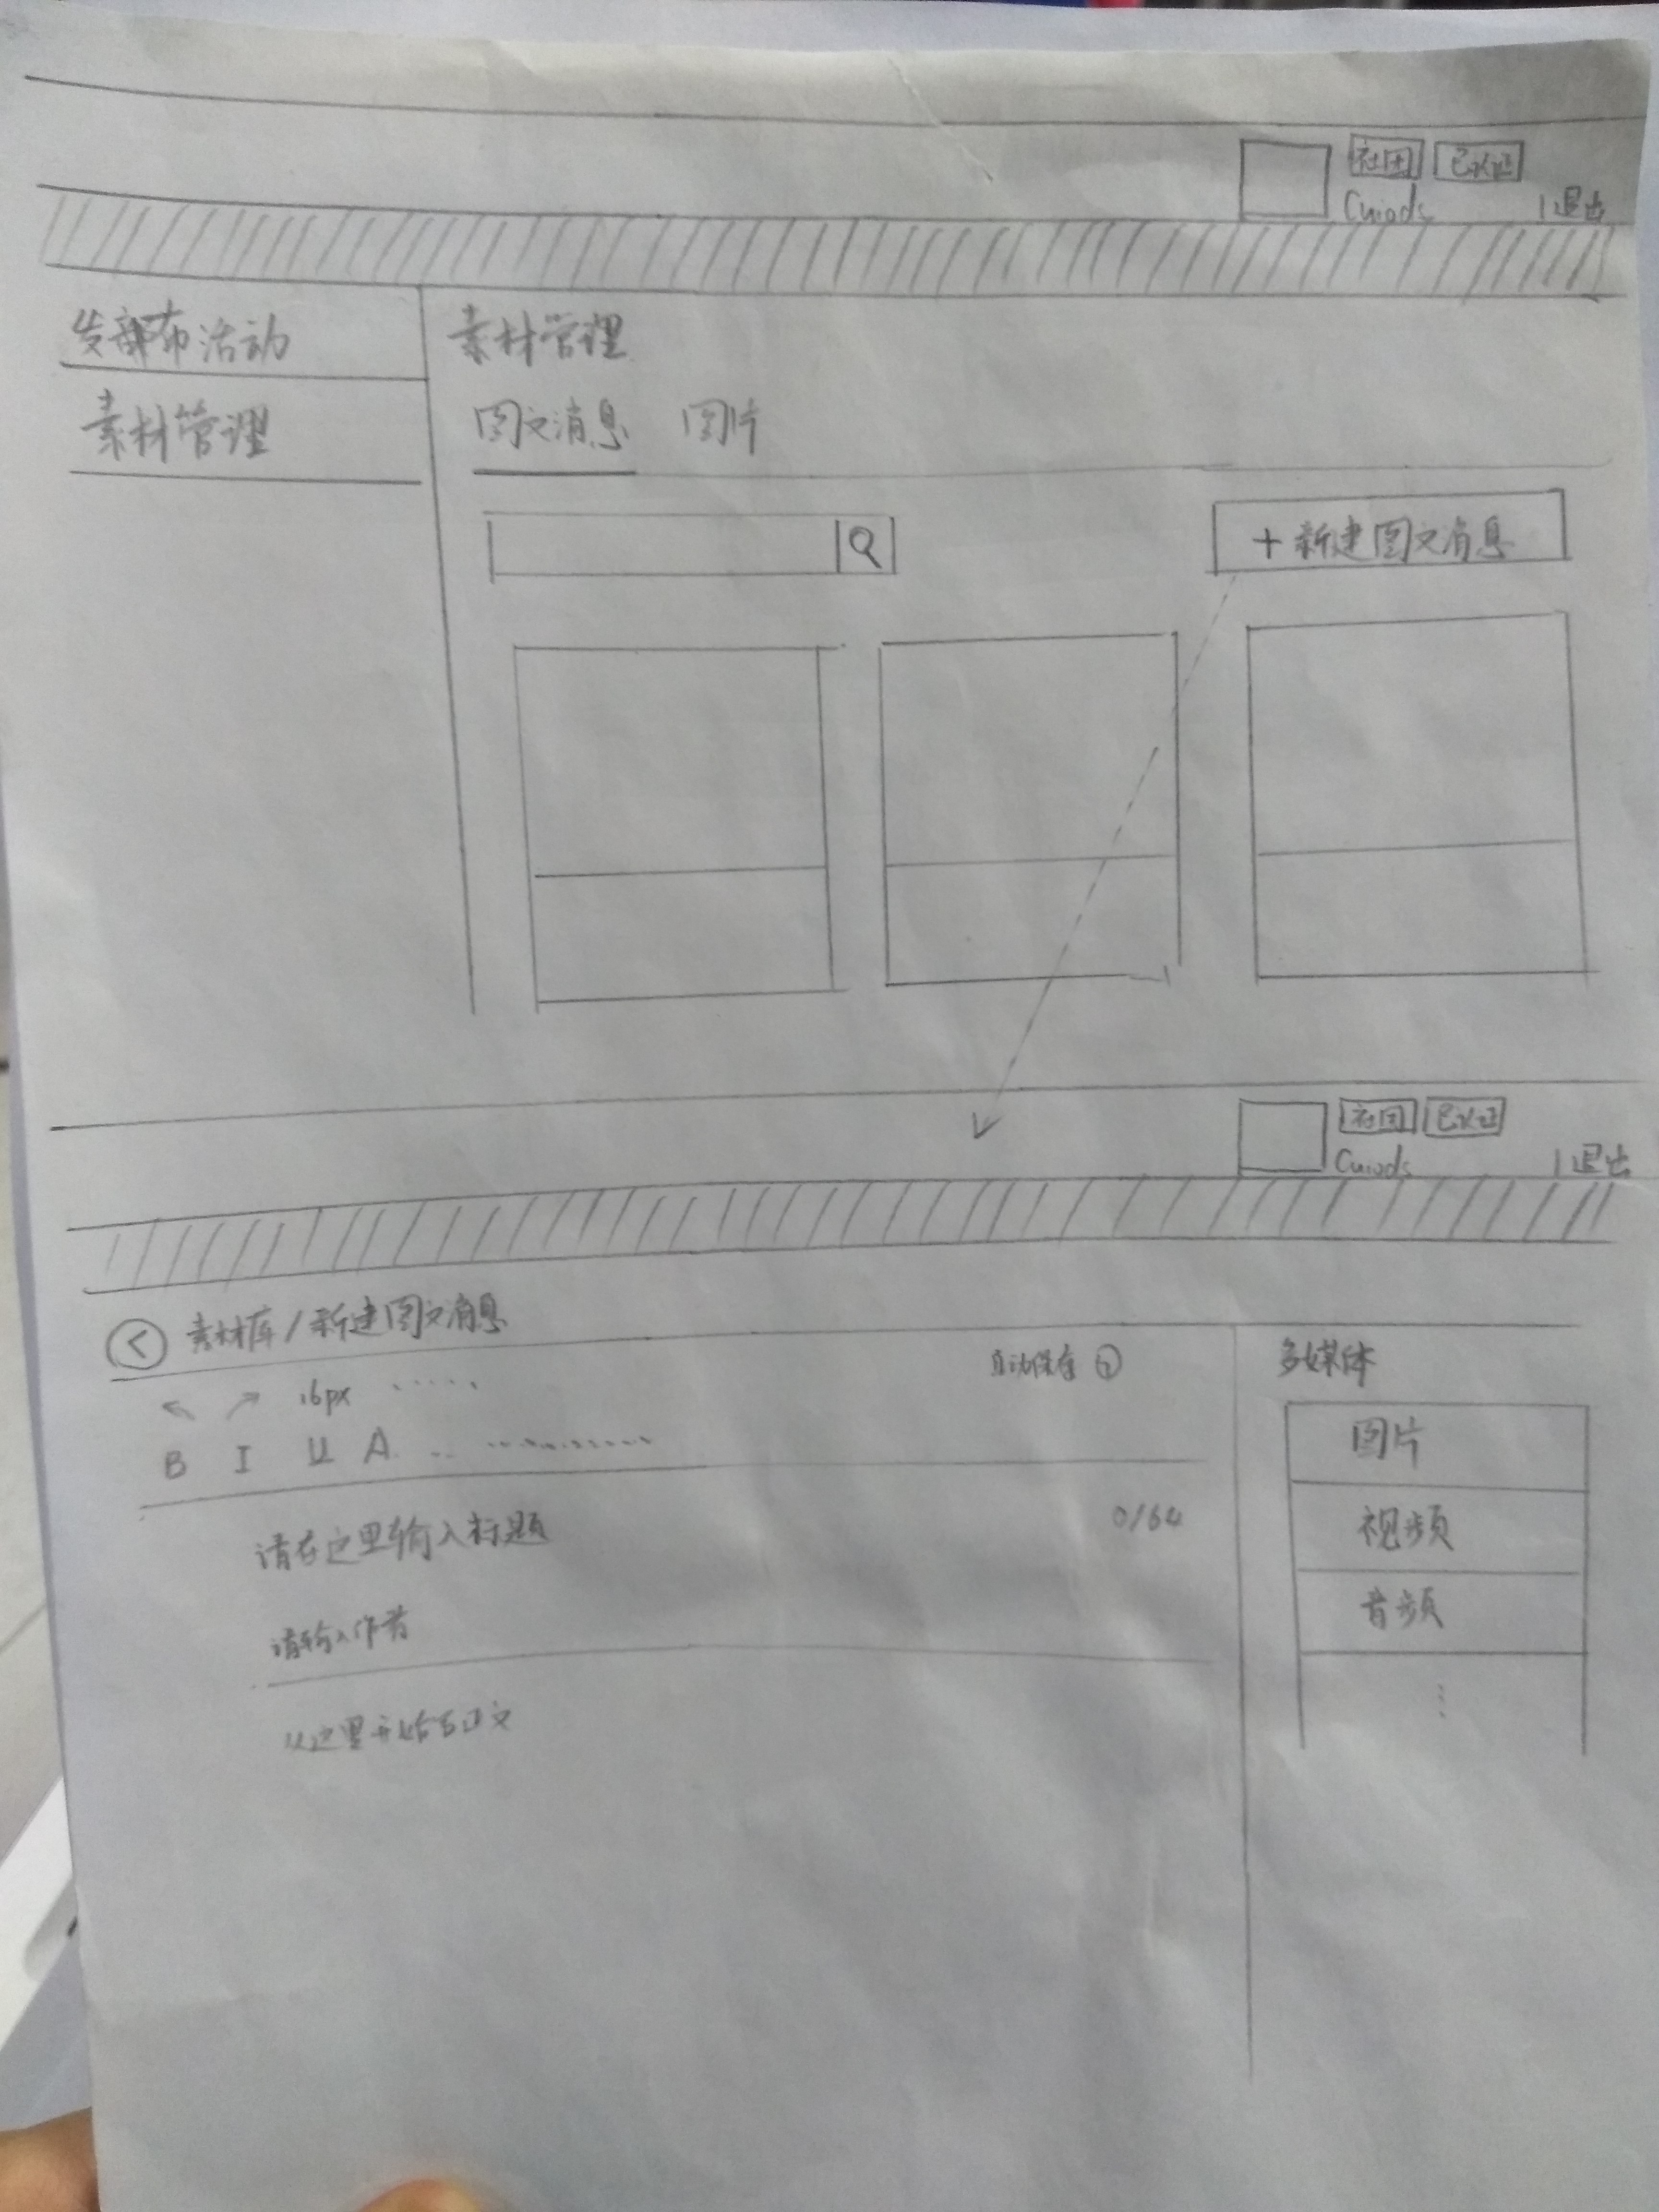 社团 已认证
Cuiods
|退出
发布活动
素材管理
素材管理
图文消息 图片
+新建图文消息
社团 已认证
Cuiods
|退出
< 素材库/新建图文消息
16px ......
自动保存
B I U A .. ............
请在这里输入标题 0/64
请输入作者
从这里开始写正文
多媒体
图片
视频
音频
⋮